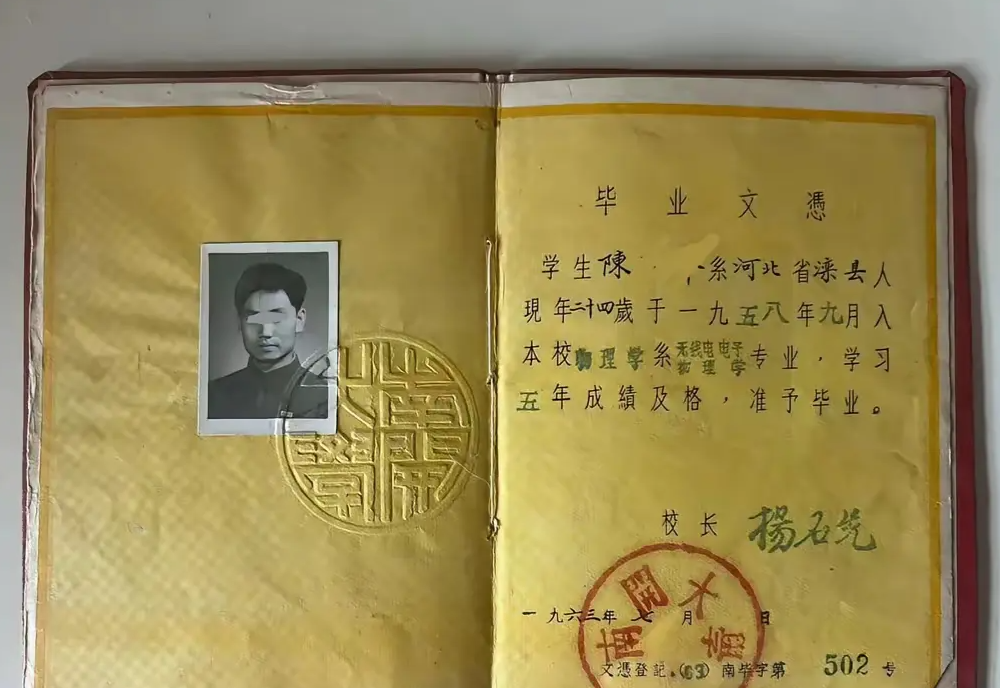 毕业文憑
学生陳 系河北省滦县人
現年二十四歲于一九五八年九月入
本校物理学系无线电电子物理学专业，学习
五年成績及格，准予毕业。
校长 楊石先
一九六三年七月 日
南開大學
文憑登記(63)南毕字第 502 号